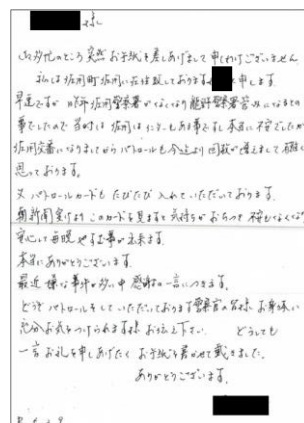 様
ご多忙のところ突然お手紙を差しあげまして申しわけございません
私は佐用町佐用に在住致しております と申します
早速ですが 昨年佐用警察署がなくなり 龍野警察署管内になるとの
事でしたので 当時は 佐用は 事ですし 本当に不安でしたが
佐用交番になりましてからパトロールも今迄より回数が増えまして 心強く
思っております。
又 パトロールカードも たびたび 入れていただいております。
朝新聞受けより このカードを見ますと気持ちがおちつき 不安もなくなり
安心して毎晩やすむ事が出来ます。
本当にありがとうございます。
最近 嫌な事件が多い中 感謝の一言につきます。
どうぞ パトロールをしていただいております警察官の皆様 お身体に
充分お気をつけられます様 お伝え下さい。 どうしても
一言お礼を申しあげたく お手紙を書かせて戴きました。
ありがとうございます。